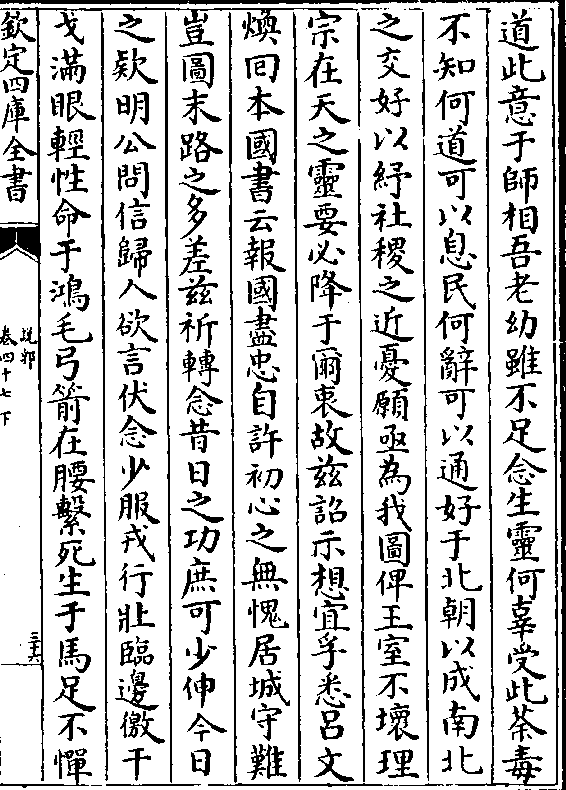 道此意于師相吾老幼雖不足念生靈何辜受此荼毒
不知何道可以息民何辭可以通好于北朝以成南北
之交好以紓社稷之近憂願亟為我圖俾王室不壞理
宗在天之靈要必降于爾衷故兹詔示想宜孚悉吕文
煥回本國書云報國盡忠自許初心之無愧居城守難
豈圖末路之多差兹祈轉念昔日之功庶可少伸今日
之欵明公問信歸人欲言伏念少服戎行壯臨邊徼干
戈滿眼輕性命于鴻毛弓箭在腰繫死生于馬足不憚
欽定四庫全書
説郛
卷四十七下
三六